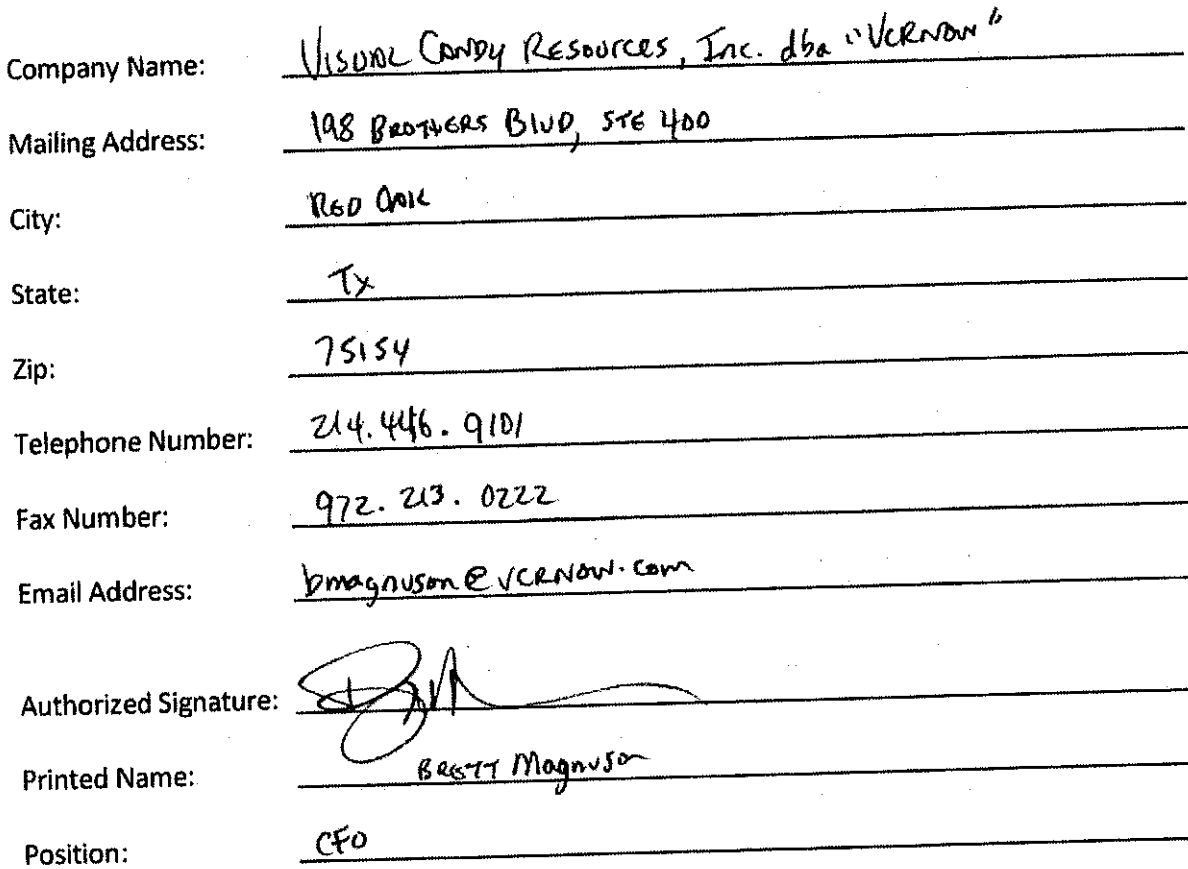 Company Name: VISUAL CANDY RESOURCES, Inc. dba "VCRNOW"
Mailing Address: 198 BROTHERS BLVD, STE 400
City: RED OAK
State: Tx
Zip: 75154
Telephone Number: 214.446.9101
Fax Number: 972.213.0222
Email Address: bmagnuson@VCRNOW.com
Authorized Signature:
Printed Name: BRETT Magnuson
Position: CFO